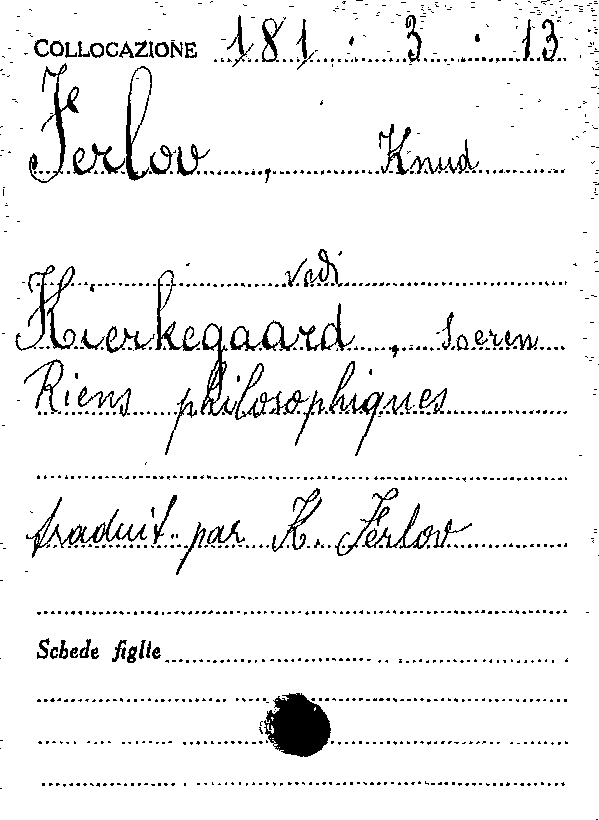 COLLOCAZIONE 181 · 3 · 13
Ferlov, Knud
vedi
Kierkegaard, Soeren
Riens philosophiques
traduit par K. Ferlov
Schede figlie